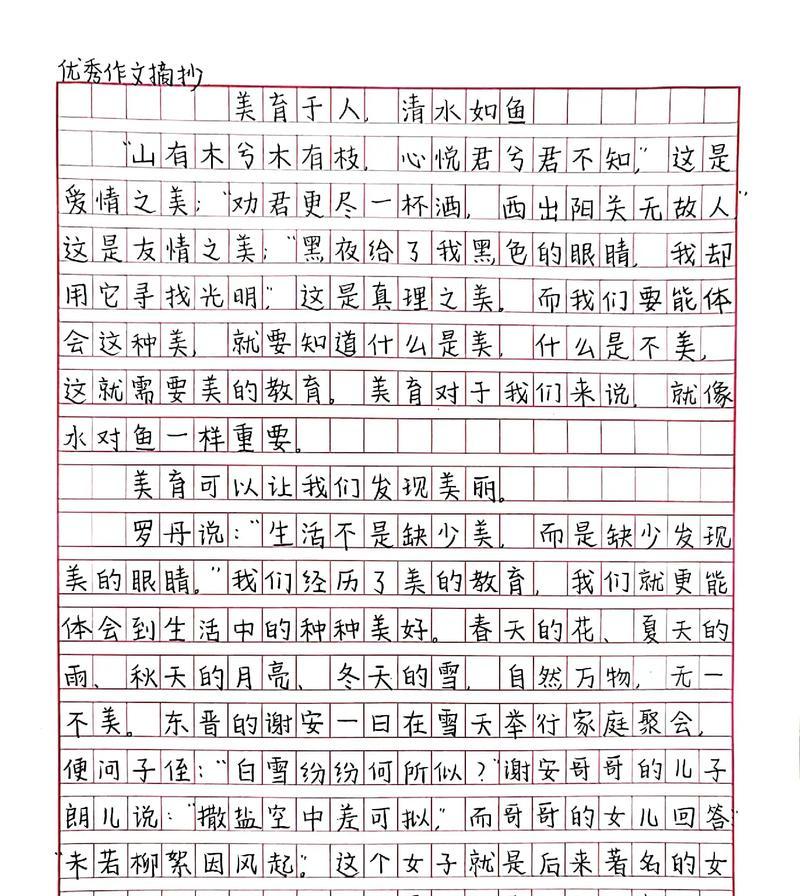 优秀作文摘抄
美育于人，清水如鱼
“山有木兮木有枝，心悦君兮君不知，”这是
爱情之美；“劝君更尽一杯酒，西出阳关无故人”
这是友情之美；“黑夜给了我黑色的眼睛，我却
用它寻找光明；”这是真理之美。而我们要能体
会这种美，就要知道什么是美，什么是不美，
这就需要美的教育。美育对于我们来说，就像
水对鱼一样重要。
美育可以让我们发现美丽。
罗丹说：“生活不是缺少美，而是缺少发现
美的眼睛。”我们经历了美的教育，我们就更能
体会到生活中的种种美好。春天的花、夏天的
雨、秋天的月亮、冬天的雪，自然万物，无一
不美。东晋的谢安一日在雪天举行家庭聚会，
便问子侄：“白雪纷纷何所似？”谢安哥哥的儿子
朗儿说：“撒盐空中差可拟，”而哥哥的女儿回答：
“未若柳絮因风起。”这个女子就是后来著名的女